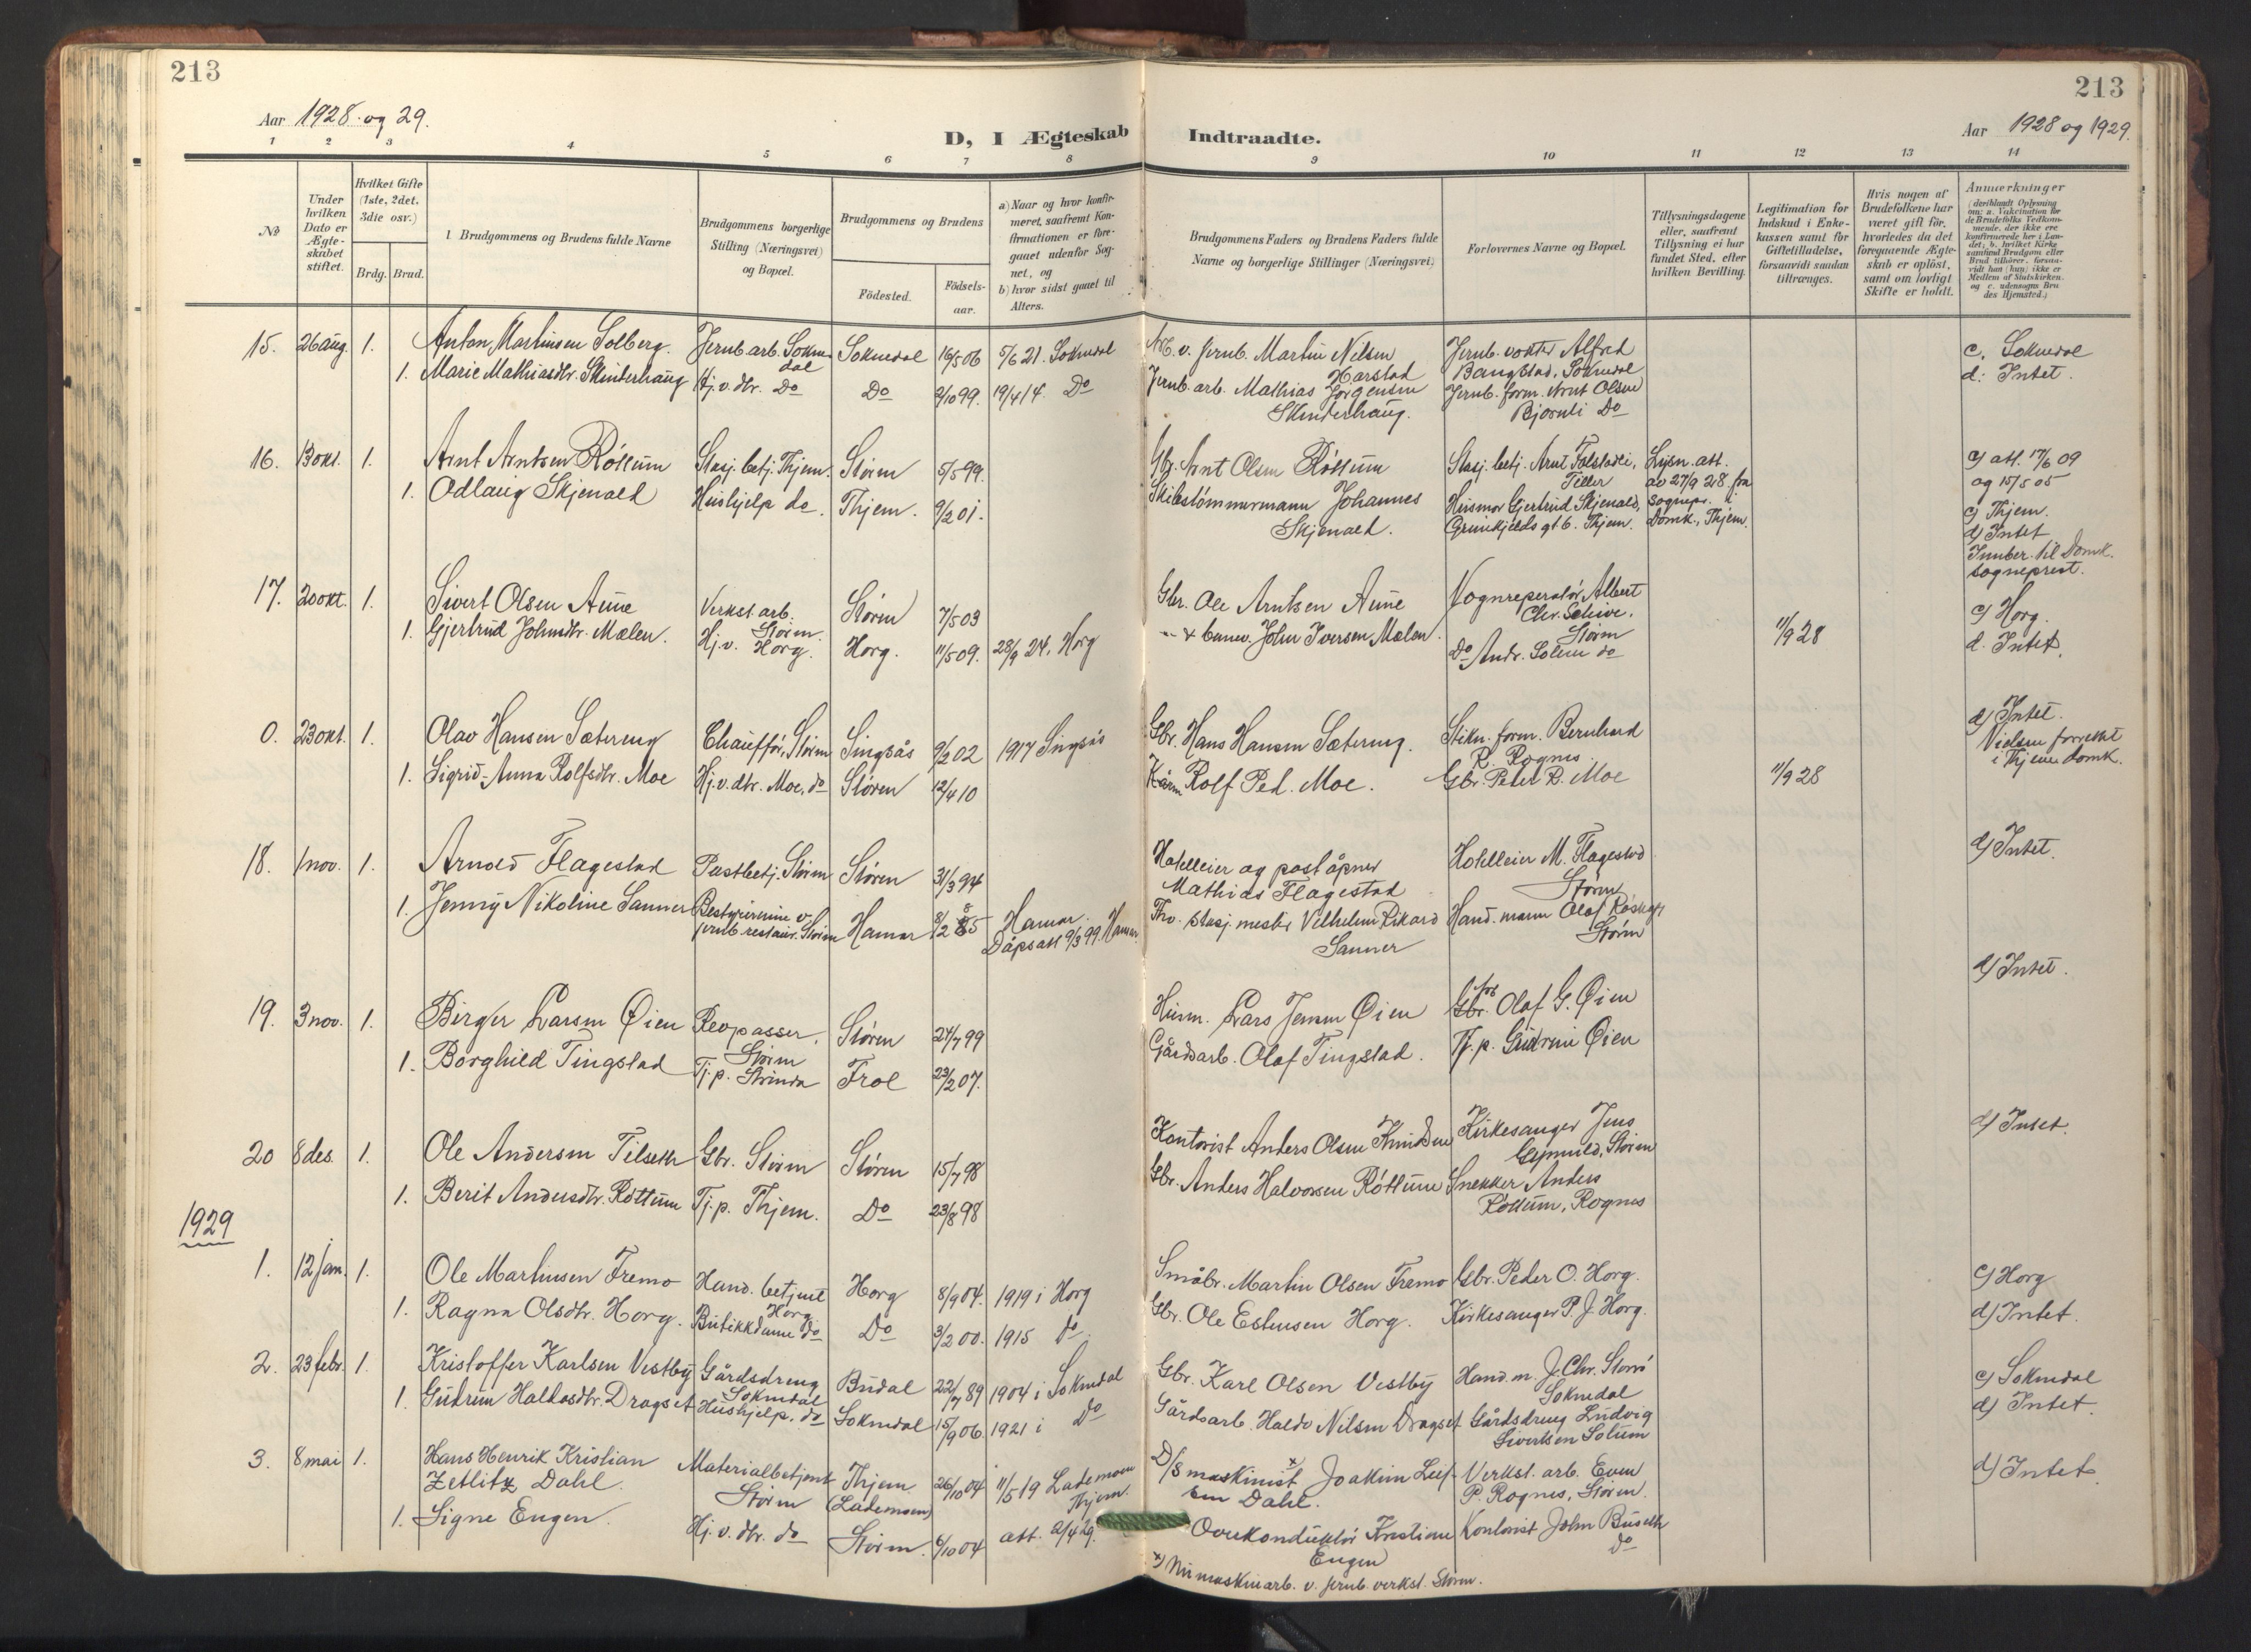 213
213
Aar 1928 og 29.
D, I Ægteskab Indtraadte.
Aar 1928 og 1929.
1 2 3 4 5 6 7 8 9 10 11 12 13 14
No
Under hvilken Dato er Ægte-skabet stiftet.
Hvilket Gifte (1ste, 2det, 3die osv.)
Brdg. Brud.
Brudgommens og Brudens fulde Navne
Brudgommens borgerlige Stilling (Næringsvei) og Bopæl.
Brudgommens og Brudens
Fødested. Fødsels-aar.
a) Naar og hvor konfir-meret, saafremt Kon-firmationen er fore-gaaet udenfor Sog-net, og
b) hvor sidst gaaet til Alters.
Brudgommens Faders og Brudens Faders fulde Navne og borgerlige Stillinger (Næringsvei)
Forlovernes Navne og Bopæl.
Tillysningsdagene eller, saafremt Tillysning ei har fundet Sted, efter hvilken Bevilling.
Legitimation for Indskud i Enke-kassen samt for Giftetilladelse, forsaavidt saadan tiltrænges.
Hvis nogen af Brudefolkene har været gift før, hvorledes da det foregaaende Ægte-skab er opløst, samt om lovligt Skifte er holdt.
Anmærkninger
(deriblandt Oplysning om: a. Vakcination for de Brudefolks Vedkom-mende, der ikke ere konfirmerede her i Lan-det; b. hvilket Kirke samfund Brudgom eller Brud tilhører, forsaa-vidt han (hun) ikke er Medlem af Statskirken, og c. udensogns Bru des Hjemsted.)
15. 26 aug. 1. Anton Martinsen Solberg. Jernb.arb. Sokne-dal Soknedal 16/5 06 5/6 21. Soknedal
v. Jernb. Martin Nilsen Harstad Jernb. vokter Alfred Bangstad, Soknedal
c. Soknedal
d: Intet.
1. Marie Mathiasdtr. Skinderhaug Hj.v. dtr. Do Do 2/10 99. 19/4 14. Do
Jernb. arb. Mathias Jørgensen Skinderhaug. Jernb. form. Arnt Olsen Bjørnli Do
16. 13 okt. 1. Arnt Arntsen Røttum Stasj. betj. Thjem. Støren 5/5 99.
Gbr. Arnt Olsen Røttum Stasj. betj. Arnt Folstadli, Tiller
Lysn. att. av 27/9 28. fra sognepr. i Domk., Thjem.
c) att. 17/6 09 og 15/5 05
c) Thjem.
d) Intet
Innber. til Domk. sogneprest.
1. Odlaug Skjenald Hushjelp do. Thjem. 9/2 01.
Skibstømmermann Johannes Skjenald. Husmor Gjertrud Skjenald, gt 6. Thjem.
17. 20 okt. 1. Sivert Olsen Aune Verkst. arb. Støren. Støren 7/5 03
Gbr. Ole Arntsen Aune Vognreperatør Albert Chr. Støren
1. Gjertrud Johnsdtr. Mælen. Hj.v. Horg. Horg. 11/5 09. 28/9 24. Horg
John Iversen Mælen. Do Andr. Solem do
11/9 28
c) Horg.
d. Intet.
0. 23 okt. 1. Olav Hansen Sætereng Chauffør, Støren Singsås 9/2 02 1917 Singsås
Gbr. Hans Hansen Sætereng. form. Bernhard R. Rognes
d) Intet.
Vielsen forrettet i Thjem Domk.
1. Sigrid-Anna Rolfsdtr. Moe Hj.v. dtr. Moe, do Støren 12/4 10
Rolf Ped. Moe. Gbr. Peter R. Moe
11/9 28
18. 1 nov. 1. Arnold Flagestad Postbetj. Støren Støren 31/3 94
Hotelleier og poståpner Mathias Flagestad Hotelleier M. Flagestad Støren
d) Intet.
1. Jenny Nikoline Sanner Bestyrerinne v. jernb. restaur. Støren Hamar 8/2 85 Hamar. Dåpsatt 9/3 99. Hamar.
Fhv. stasj. mester Vilhelm Rikard Sanner Hand. mann Olaf Støren
19. 3 nov. 1. Birger Larsen Øien Revpasser, Støren Støren 24/7 99
Husm. Lars Jensen Øien Gbr. Olaf G. Øien
d) Intet.
1. Borghild Tingstad Tj.p. Strinda Frol 23/2 07.
Gårdsarb. Olaf Tingstad. Tj. p. Gudrun Øien
20 8 des. 1. Ole Andersen Tilseth Gbr. Støren Støren 15/7 98
Kontorist Anders Olsen Knudsen Kirkesanger Jens Støren
d) Intet.
1. Berit Andersdtr. Røttum Tj.p. Thjem. Do 23/8 98
Gbr. Anders Halvorsen Røttum Snekker Anders Røttum, Rognes
1929
1. 12 jan. 1. Ole Martinsen Fremo Hand. betjent Horg Horg 8/9 04. 1919 i Horg
Småbr. Martin Olsen Fremo Gbr. Peder O. Horg.
c) Horg
d) Intet.
1. Ragna Olsdtr. Horg. Butikkdame do Do 3/2 00. 1915 do.
Gbr. Ole Estensen Horg. Kirkesanger P. J. Horg.
2. 23 febr. 1. Kristoffer Karlsen Vestby Gårdsdreng Soknedal Budal 22/7 89 1904 i Soknedal
Gbr. Karl Olsen Vestby Hand.m. J. Chr. Storrø Soknedal
c) Soknedal
d) Intet.
1. Gudrun Haldosdtr. Dragset Hushjelp. do Soknedal 15/9 06. 1921 i Do
Gårdsarb. Haldo Nilsen Dragset Gårdsdreng Ludvig Sivertsen Solum
3. 8 mai 1. Hans Henrik Kristian Zetlitz Dahl. Materialbetjent Støren Thjem (Lademoen) 26/10 04 11/5 19 Lademoen Thjem.
D/S maskinist x) Joakim Leif Dahl. Verkst. arb. Even P. Rognes, Støren.
d) Intet.
1. Signe Engen. Hj.v. dtr. do Støren. 6/10 04 att. 2/4 29.
Overkonduktør Kristian Engen Kontorist John Buseth Do
x) Nu maskinarb. v. jernb. verkst. Støren.